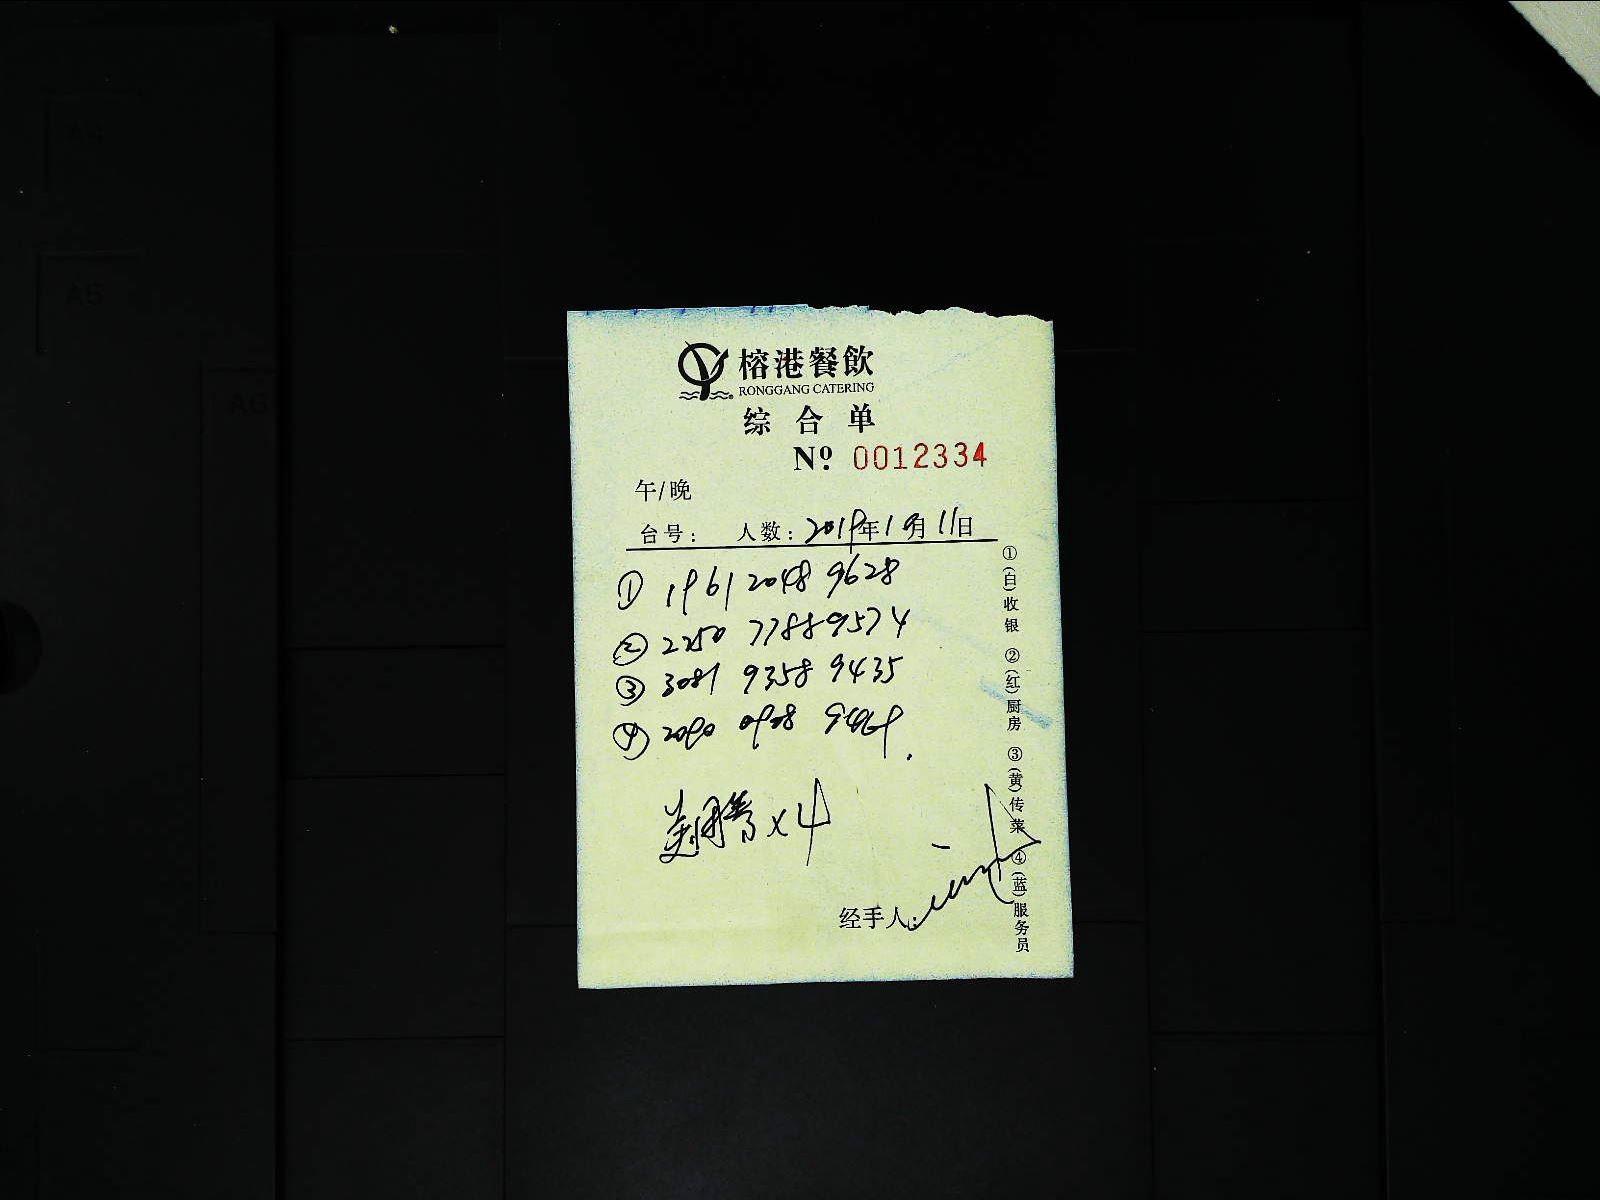 榕港餐飲
RONGGANG CATERING
综合单
№ 0012334
午/晚
台号: 人数: 2019年1月11日
① 1961 2048 9628
② 2250 7788 9574
③ 3081 9358 9435
④ 2090
美团 x4
经手人:
①(白)收银 ②(红)厨房 ③(黄)传菜 ④(蓝)服务员
A5
A6